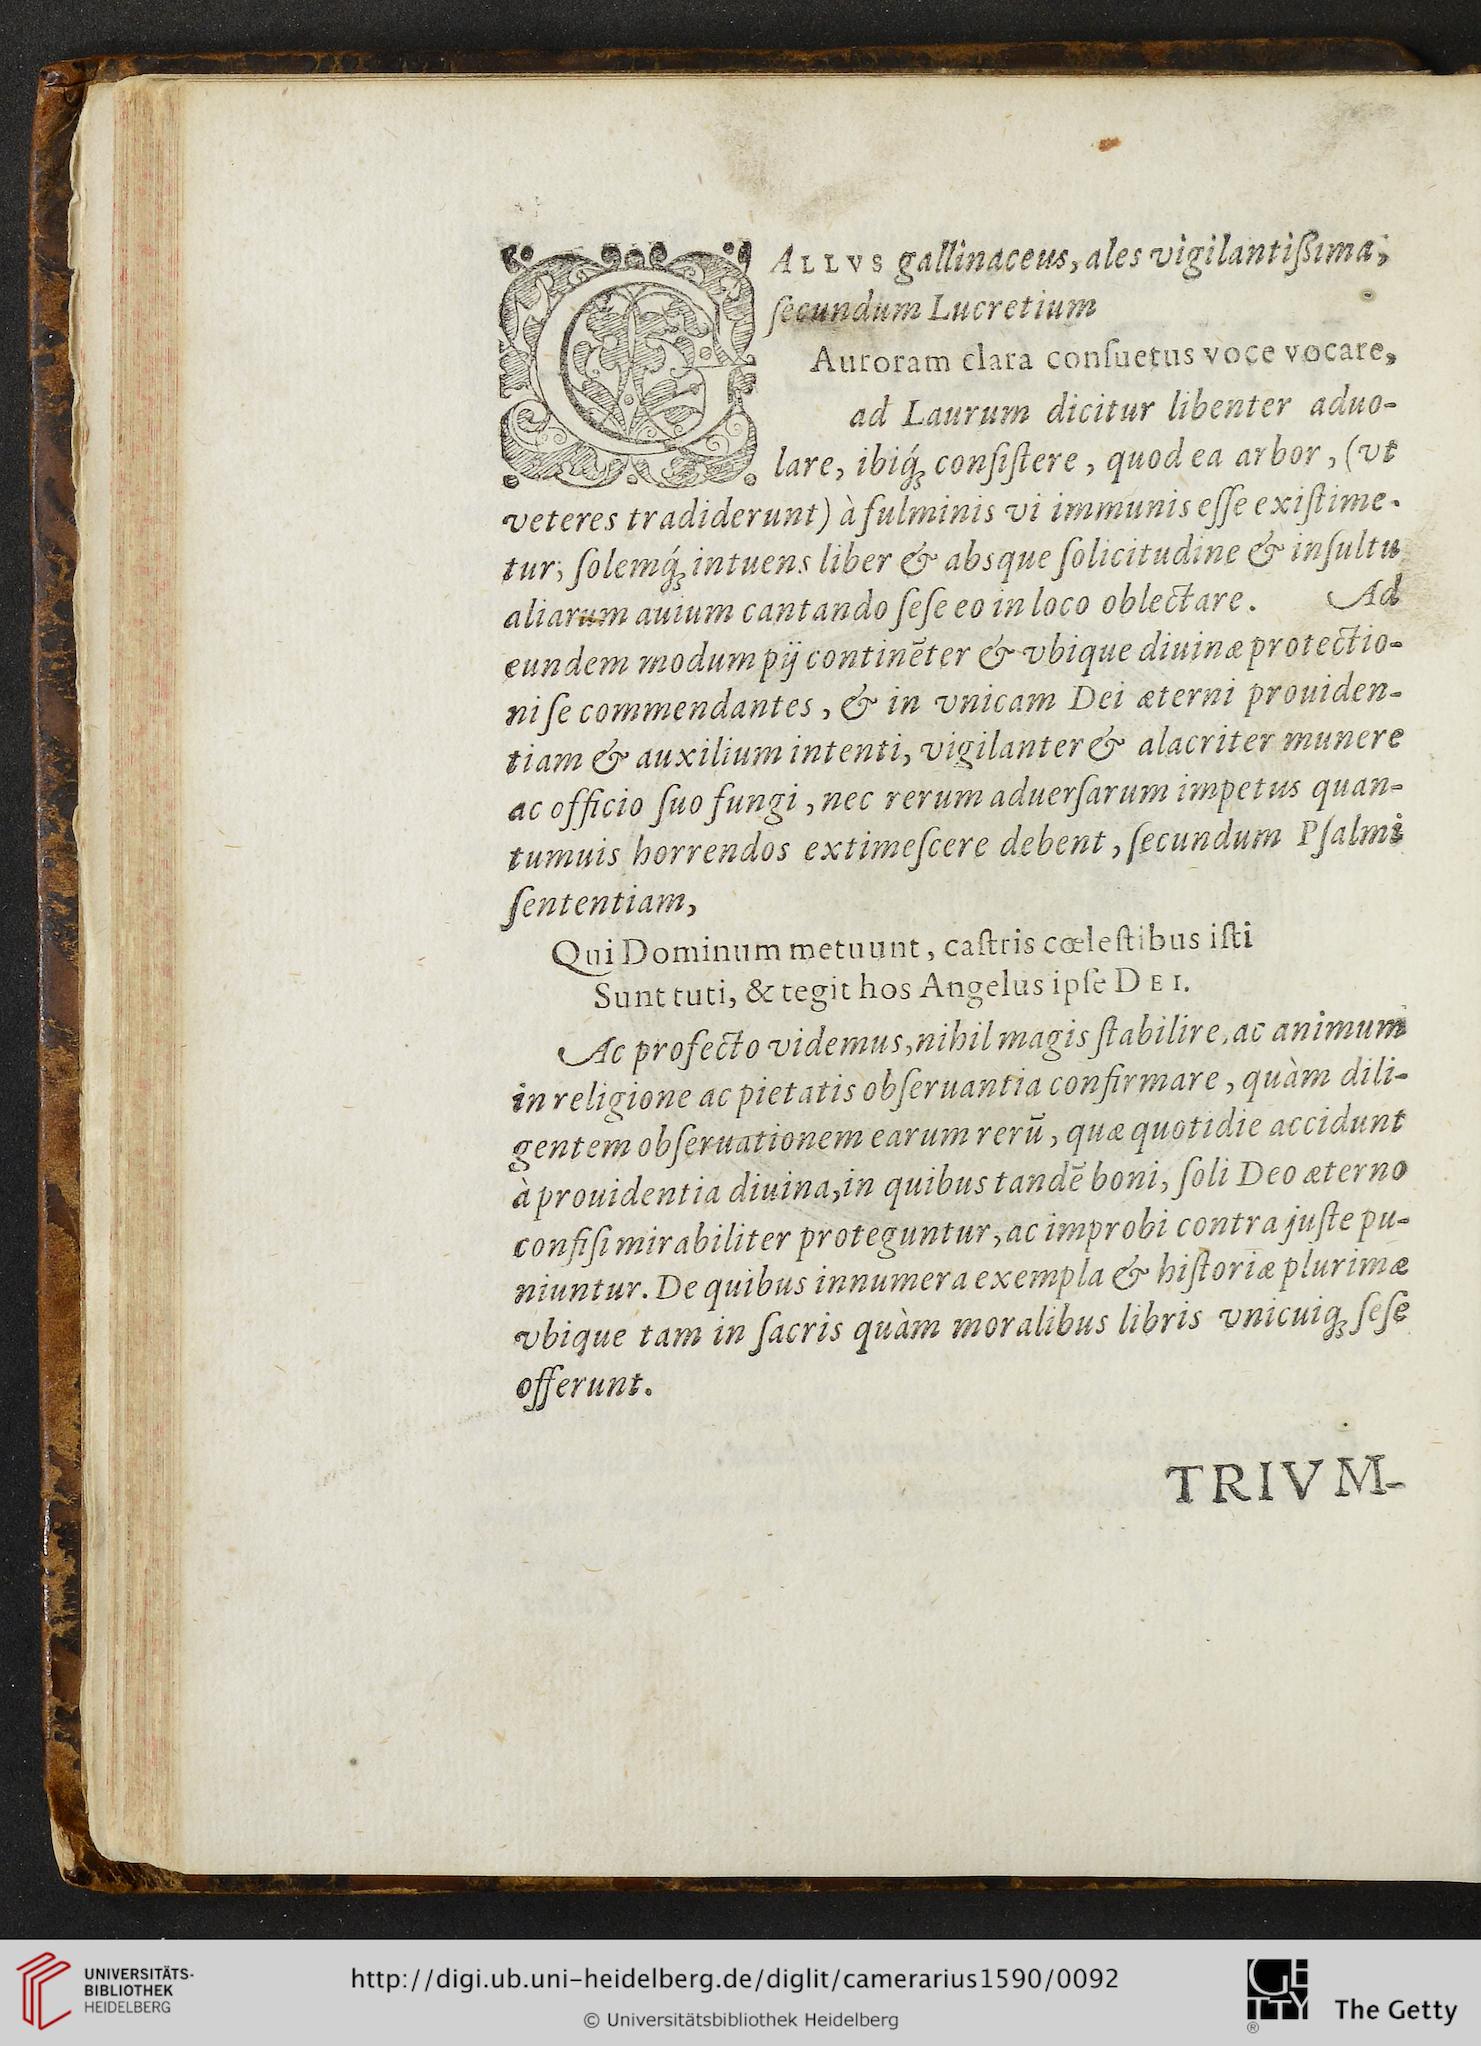 GALLVS gallinaceus, ales vigilantißima,
ſecundum Lucretium
Auroram clara conſuetus voce vocare,
ad Laurum dicitur libenter aduo-
lare, ibiq́ꝫ conſiſtere, quod ea arbor, (vt
veteres tradiderunt) à fulminis vi immunis eſſe exiſtime-
tur, ſolemq́ꝫ intuens liber & absque ſolicitudine & inſultu
aliarum auium cantando ſeſe eo in loco oblectare. Ad
eundem modum pij continẽter & vbique diuinæ protectio-
ni ſe commendantes, & in vnicam Dei æterni prouiden-
tiam & auxilium intenti, vigilanter & alacriter munere
ac officio ſuo fungi, nec rerum aduerſarum impetus quan-
tumuis horrendos extimeſcere debent, ſecundum Pſalmi
ſententiam,
Qui Dominum metuunt, caſtris cœleſtibus iſti
Sunt tuti, & tegit hos Angelus ipſe DEI.
Ac profecto videmus, nihil magis ſtabilire, ac animum
in religione ac pietatis obſeruantia confirmare, quàm dili-
gentem obſeruationem earum rerũ, quæ quotidie accidunt
à prouidentia diuina, in quibus tandẽ boni, ſoli Deo æterno
confiſi mirabiliter proteguntur, ac improbi contra juſte pu-
niuntur. De quibus innumera exempla & hiſtoriæ plurimæ
vbique tam in ſacris quàm moralibus libris vnicuiqꝫ ſeſe
offerunt.
TRIVM-
UNIVERSITÄTS-
BIBLIOTHEK
HEIDELBERG
http://digi.ub.uni-heidelberg.de/diglit/camerarius1590/0092
© Universitätsbibliothek Heidelberg
GETTY
®
The Getty